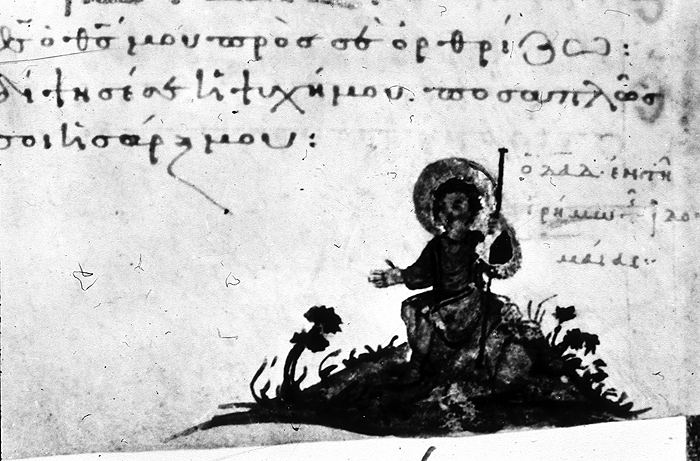 θς ὁ θς μου πρὸς σὲ ὀρθρίζω:
δίψησέ σε ἡ ψυχή μου. ποσαπλῶς
σοι ἡ σάρξ μου:
ὁ δαδ ἐν τῆ
ἐρήμω τῆ ἰδου
μαίας